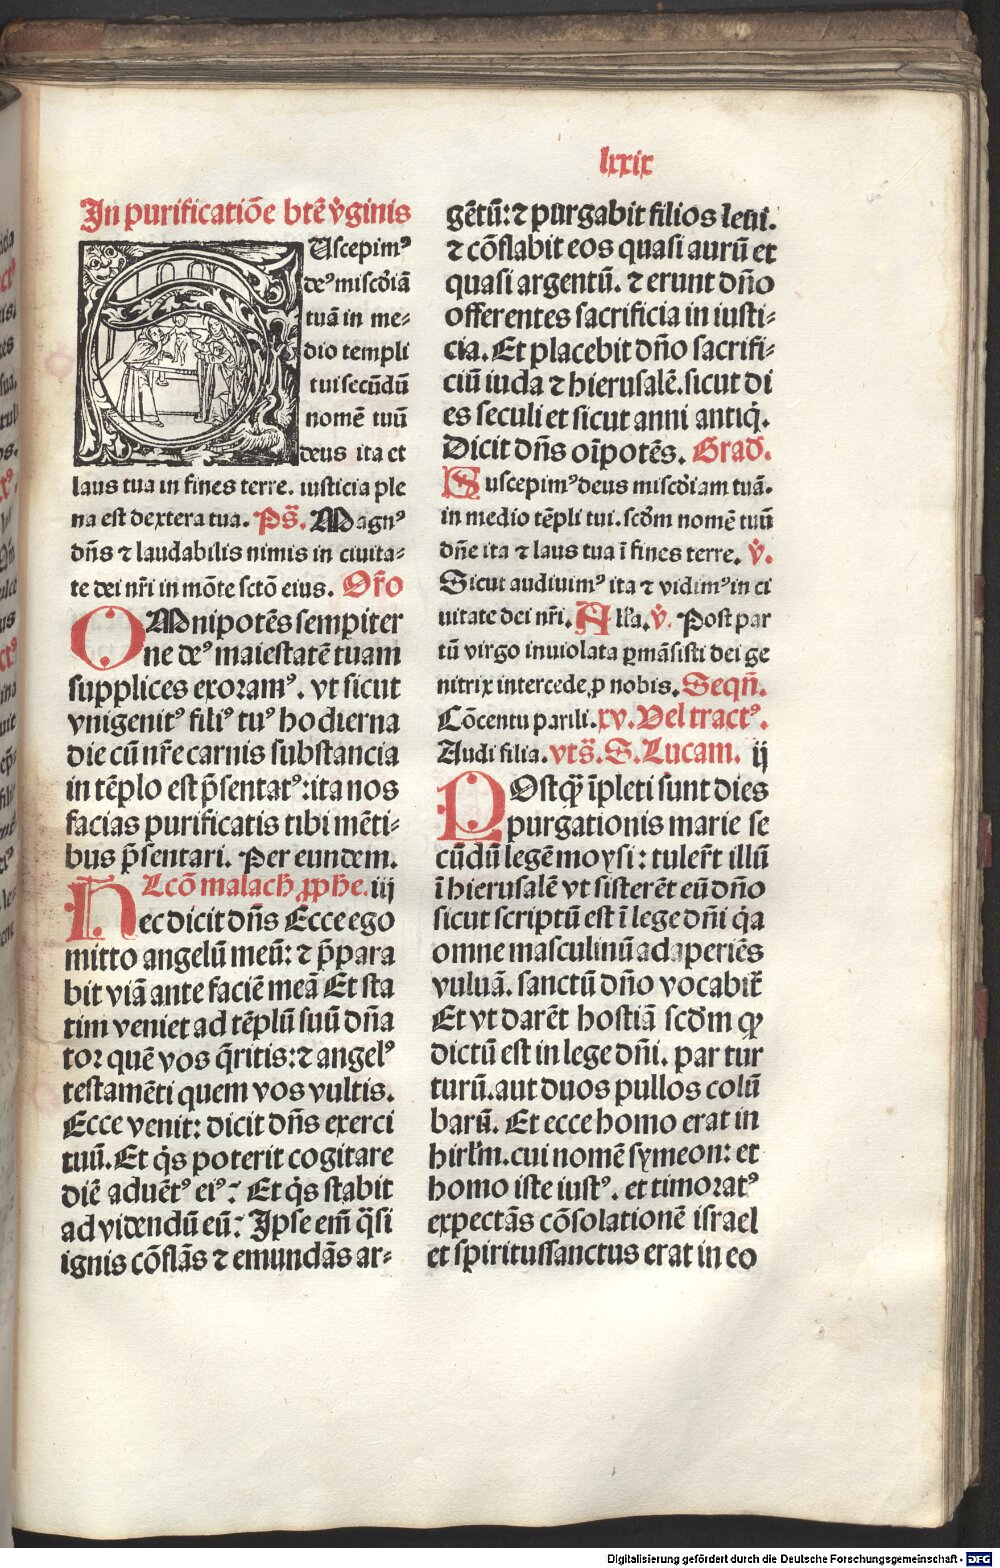 lxxix
In purificatiõe btẽ v̾ginis
SUscepimꝰ
deꝰ misc̾diã
tuã in me-
dio templi
tui secũdũ
nomẽ tuũ
deus ita et
laus tua in fines terre. iusticia ple
na est dextera tua. Ps̃. Magnꝰ
dñs ⁊ laudabilis nimis in ciuita-
te dei nr̃i in mõte sctõ eius. Or̃o
OMnipotẽs sempiter
ne deꝰ maiestatẽ tuam
supplices exoramꝰ. vt sicut
vnigenitꝰ filiꝰ tuꝰ hodierna
die cũ nr̃e carnis substancia
in tẽplo est p̃sentatꝰ: ita nos
facias purificatis tibi mẽti-
bus p̃sentari. Per eundem.
Lcõ malach̄ ꝓph̄e. iij
Hec dicit dñs Ecce ego
mitto angelũ meũ: ⁊ p̃para
bit viã ante faciẽ meã Et sta
tim veniet ad tẽplũ suũ dña
tor quẽ vos q̃ritis: ⁊ angelꝰ
testamẽti quem vos vultis.
Ecce venit: dicit dñs exerci
tuũ. Et q̇s poterit cogitare
diẽ aduẽtꝰ eiꝰ: Et q̇s stabit
ad videndũ eũ: Ipse em̃ q̃si
ignis cõflãs ⁊ emundãs ar-
gẽtũ: ⁊ purgabit filios leui.
⁊ cõflabit eos quasi aurũ et
quasi argentũ. ⁊ erunt dño
offerentes sacrificia in iusti-
cia. Et placebit dño sacrifi-
ciũ iuda ⁊ hierusalẽ. sicut di
es seculi et sicut anni antiq̇.
Dicit dñs oĩpotẽs. Grad̾.
Suscepimꝰ deus misc̾diam tuã.
in medio tẽpli tui. scd̾m nomẽ tuũ
dñe ita ⁊ laus tua ĩ fines terre. v̾.
Sicut audiuimꝰ ita ⁊ vidimꝰ in ci
uitate dei nr̃i. All'a. v̾. Post par
tũ virgo inuiolata ꝑmãsisti dei ge
nitrix intercede ꝓ nobis. Seqñ.
Cõcentu parili. xv. Vel tractꝰ.
Audi filia. vts̃. S. Lucam. ij
POstq̃ ĩpleti sunt dies
purgationis marie se
cũdũ legẽ moysi: tuler̃t illũ
ĩ hierusalẽ vt sisterẽt eũ dño
sicut scriptũ est ĩ lege dñi q̇a
omne masculinũ adaperiẽs
vuluã. sanctũ dño vocabit̃
Et vt darẽt hostiã scd̾m q̃
dictũ est in lege dñi. par tur
turũ. aut duos pullos colũ
barũ. Et ecce homo erat in
hirl'm. cui nomẽ symeon: et
homo iste iustꝰ. et timoratꝰ
expectãs cõsolationẽ israel
et spiritussanctus erat in eo
Digitalisierung gefördert durch die Deutsche Forschungsgemeinschaft - DFG